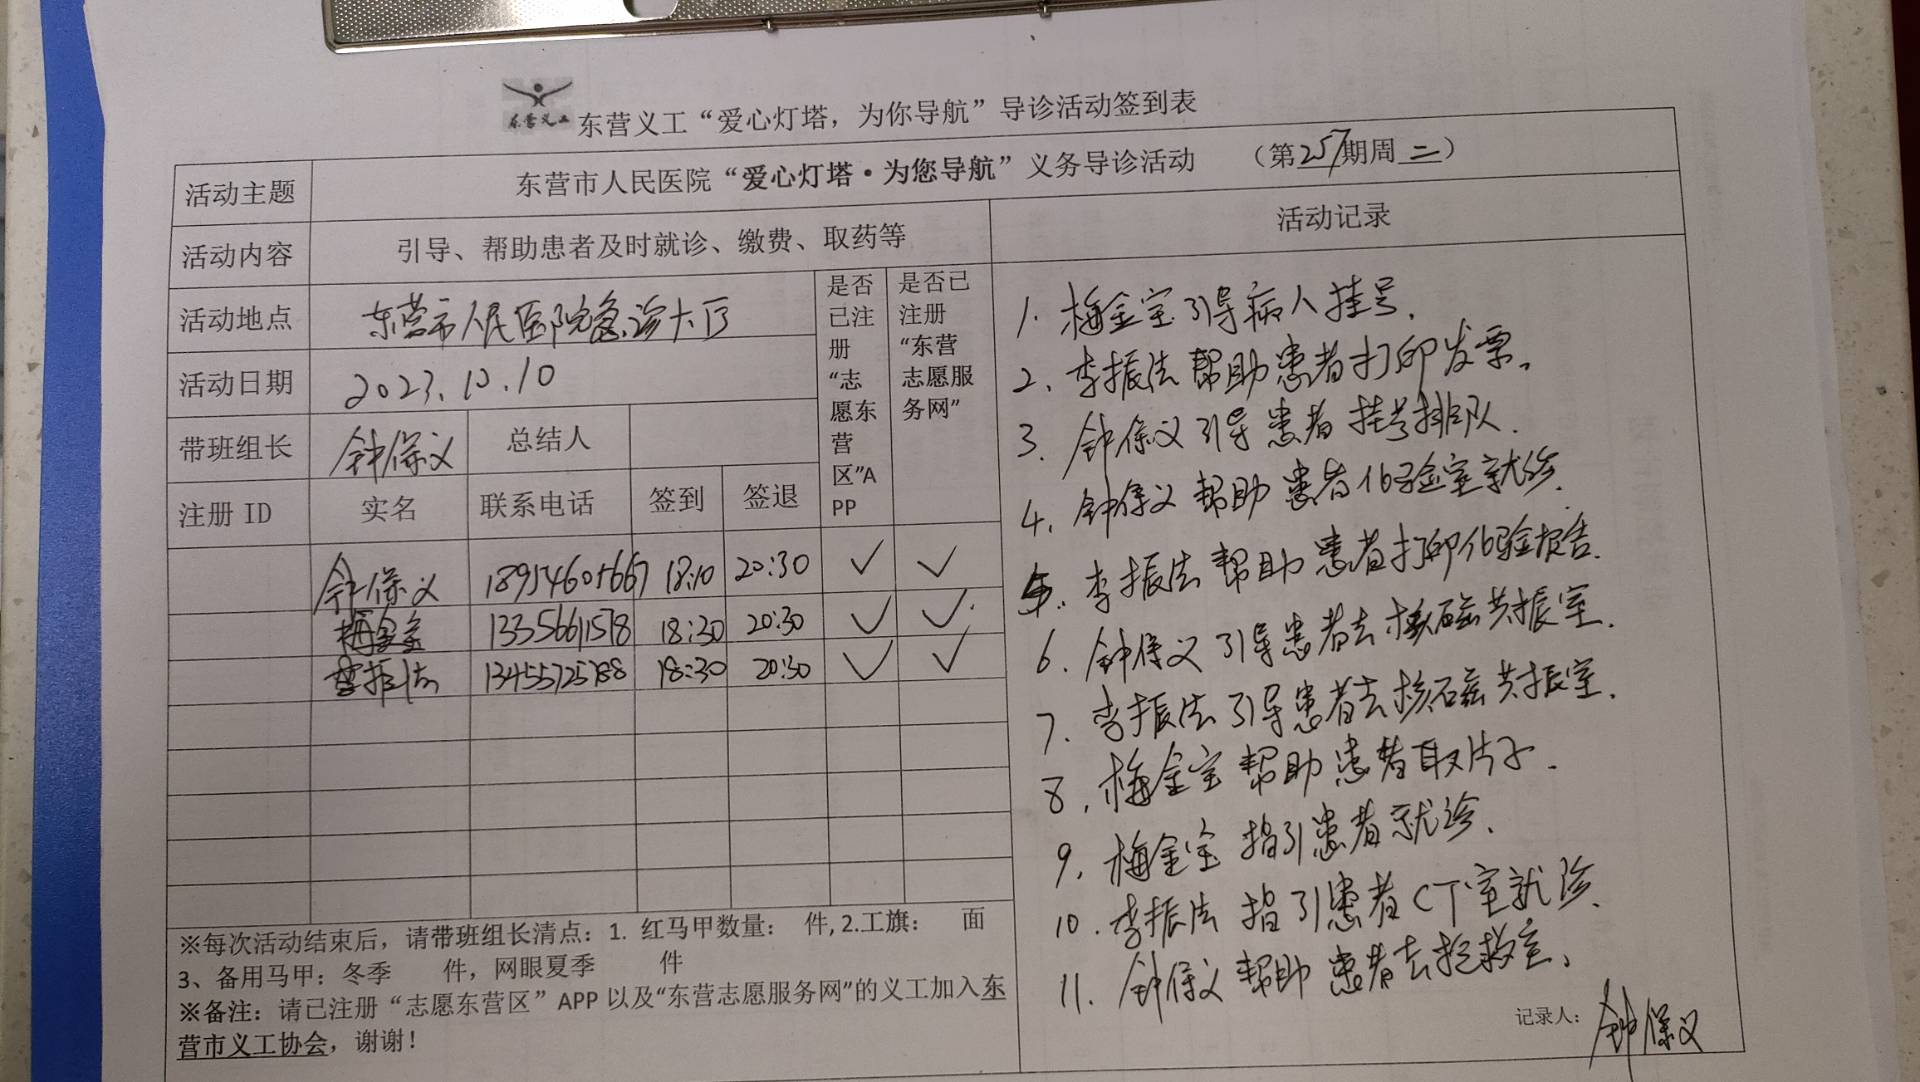 东营义工
东营义工“爱心灯塔，为你导航”导诊活动签到表
活动主题 东营市人民医院“爱心灯塔·为您导航”义务导诊活动 （第257期周二）
活动内容 引导、帮助患者及时就诊、缴费、取药等
活动地点 东营市人民医院急诊大厅
活动日期 2023.10.10
带班组长 钟保义 总结人
注册 ID 实名 联系电话 签到 签退
是否
已注
册
“志
愿东
营
区”A
PP
是否已
注册
“东营
志愿服
务网”
钟保义 18954605667 18:10 20:30 ✓ ✓
梅金宝 13356611578 18:30 20:30 ✓ ✓
李振法 13455725788 18:30 20:30 ✓ ✓
※每次活动结束后，请带班组长清点：1. 红马甲数量： 件, 2.工旗： 面
3、备用马甲：冬季 件，网眼夏季 件
※备注：请已注册“志愿东营区”APP 以及“东营志愿服务网”的义工加入东
营市义工协会，谢谢！
活动记录
1. 梅金宝引导病人挂号.
2. 李振法帮助患者打印发票。
3. 钟保义引导患者挂号排队.
4. 钟保义帮助患者化验室就诊.
5. 李振法帮助患者打印化验报告.
6. 钟保义引导患者去核磁共振室.
7. 李振法引导患者去核磁共振室.
8. 梅金宝帮助患者取片子.
9. 梅金宝指引患者就诊.
10. 李振法指引患者CT室就诊.
11. 钟保义帮助患者去抢救室。
记录人：钟保义